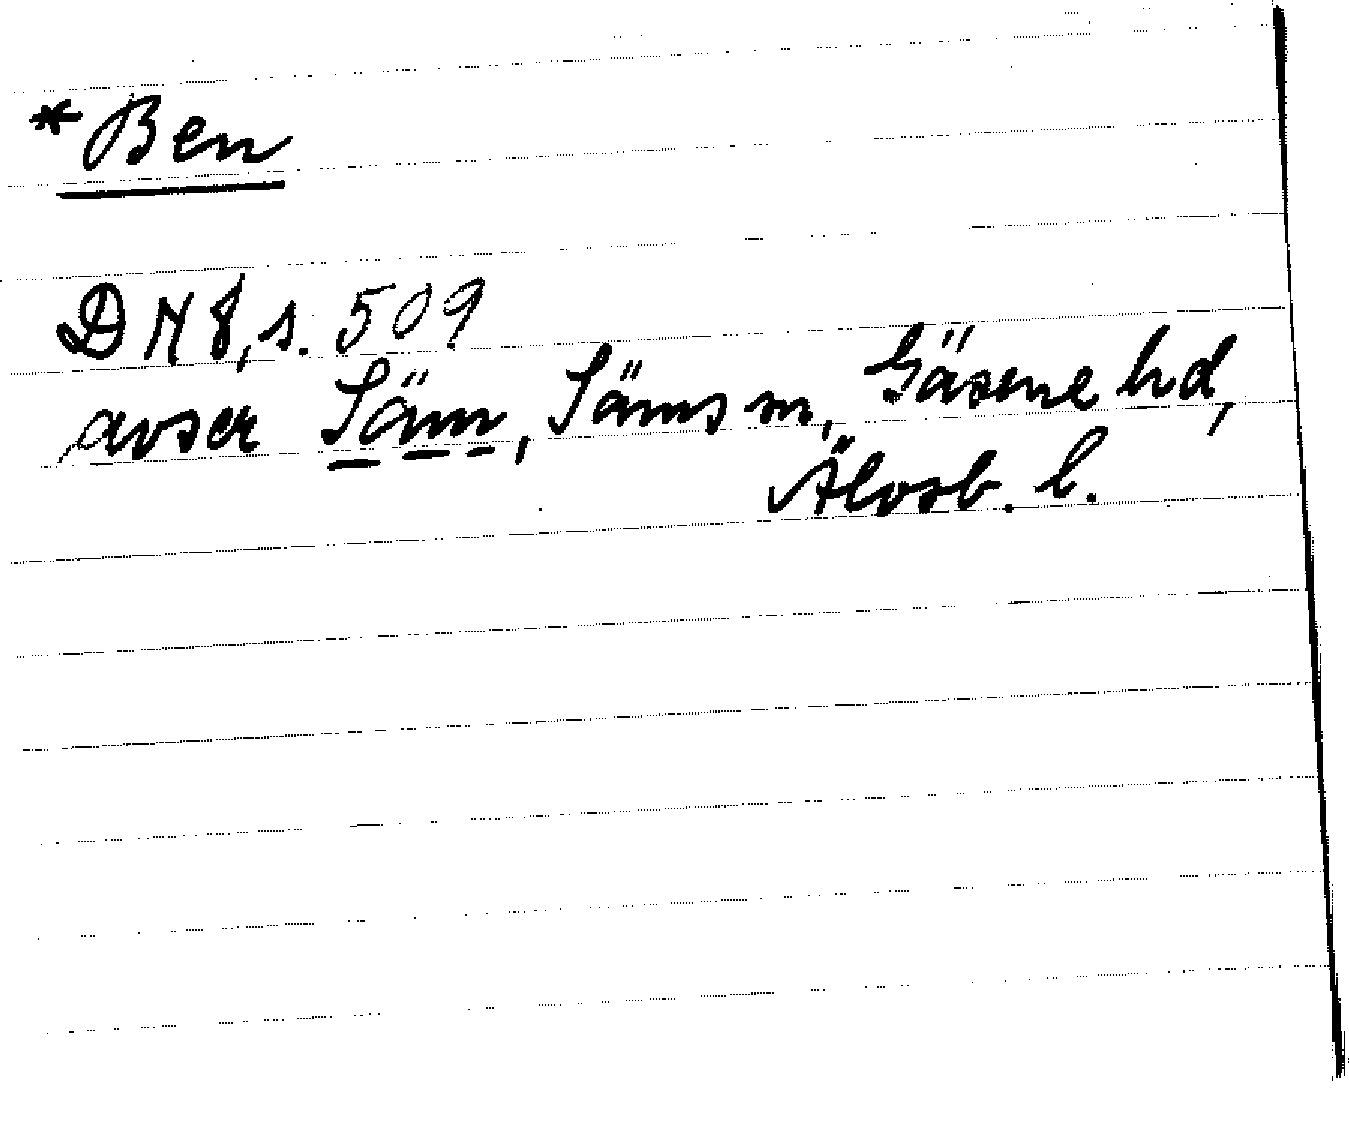 *Ben
DN 8, s. 509
avser Säm, Säms sn, Gäsene hd,
Älvsb. l.